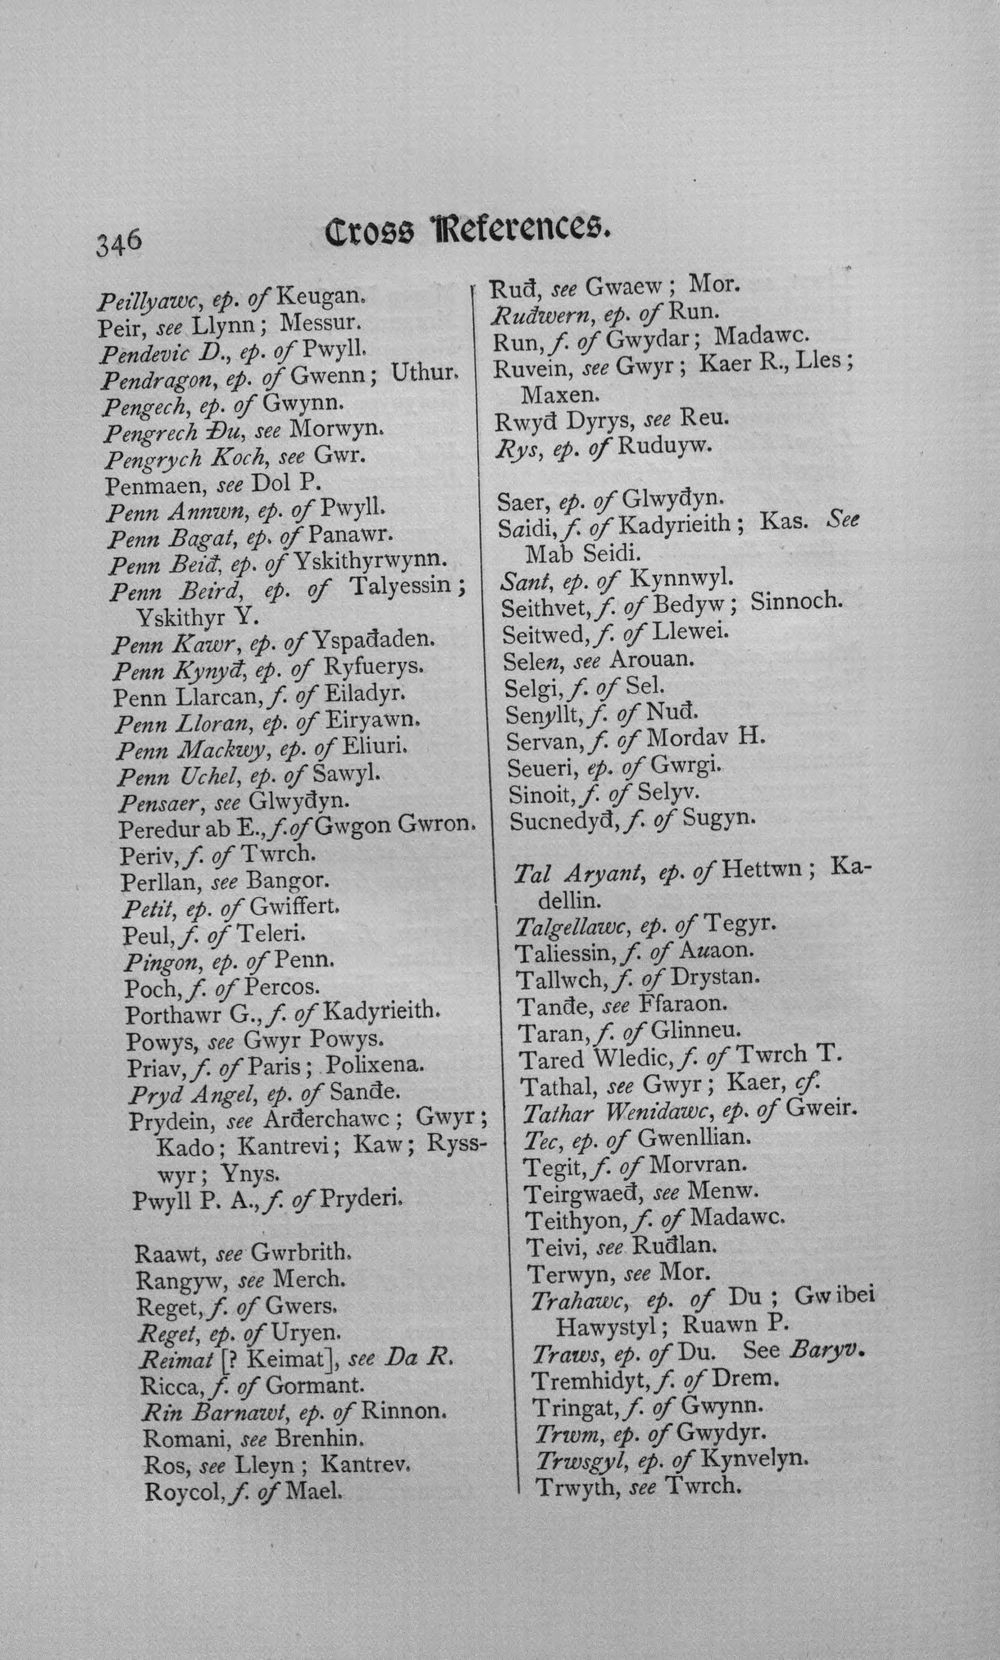 346
Cross References.
Peillyawc, ep. of Keugan.
Peir, see Llynn; Messur.
Pendevic D., ep. of Pwyll.
Pendragon, ep. of Gwenn; Uthur.
Pengech, ep. of Gwynn.
Pengrech Đu, see Morwyn.
Pengrych Koch, see Gwr.
Penmaen, see Dol P.
Penn Annwn, ep. of Pwyll.
Penn Bagat, ep. of Panawr.
Penn Beiđ, ep. of Yskithyrwynn.
Penn Beird, ep. of Talyessin;
Yskithyr Y.
Penn Kawr, ep. of Yspađaden.
Penn Kynyđ, ep. of Ryfuerys.
Penn Llarcan, f. of Eiladyr.
Penn Lloran, ep. of Eiryawn.
Penn Mackwy, ep. of Eliuri.
Penn Uchel, ep. of Sawyl.
Pensaer, see Glwyđyn.
Peredur ab E., f. of Gwgon Gwron.
Periv, f. of Twrch.
Perllan, see Bangor.
Petit, ep. of Gwiffert.
Peul, f. of Teleri.
Pingon, ep. of Penn.
Poch, f. of Percos.
Porthawr G., f. of Kadyrieith.
Powys, see Gwyr Powys.
Priav, f. of Paris; Polixena.
Pryd Angel, ep. of Sanđe.
Prydein, see Arđerchawc; Gwyr;
Kado; Kantrevi; Kaw; Ryss-
wyr; Ynys.
Pwyll P. A., f. of Pryderi.
Raawt, see Gwrbrith.
Rangyw, see Merch.
Reget, f. of Gwers.
Reget, ep. of Uryen.
Reimat [? Keimat], see Da R.
Ricca, f. of Gormant.
Rin Barnawt, ep. of Rinnon.
Romani, see Brenhin.
Ros, see Lleyn; Kantrev.
Roycol, f. of Mael.
Ruđ, see Gwaew; Mor.
Ruđwern, ep. of Run.
Run, f. of Gwydar; Madawc.
Ruvein, see Gwyr; Kaer R., Lles;
Maxen.
Rwyđ Dyrys, see Reu.
Rys, ep. of Ruduyw.
Saer, ep. of Glwyđyn.
Saidi, f. of Kadyrieith; Kas. See
Mab Seidi.
Sant, ep. of Kynnwyl.
Seithvet, f. of Bedyw; Sinnoch.
Seitwed, f. of Llewei.
Selen, see Arouan.
Selgi, f. of Sel.
Senyllt, f. of Nuđ.
Servan, f. of Mordav H.
Seueri, ep. of Gwrgi.
Sinoit, f. of Selyv.
Sucnedyđ, f. of Sugyn.
Tal Aryant, ep. of Hettwn; Ka-
dellin.
Talgellawc, ep. of Tegyr.
Taliessin, f. of Auaon.
Tallwch, f. of Drystan.
Tanđe, see Ffaraon.
Taran, f. of Glinneu.
Tared Wledic, f. of Twrch T.
Tathal, see Gwyr; Kaer, cf.
Tathar Wenidawc, ep. of Gweir.
Tec, ep. of Gwenllian.
Tegit, f. of Morvran.
Teirgwaeđ, see Menw.
Teithyon, f. of Madawc.
Teivi, see Ruđlan.
Terwyn, see Mor.
Trahawc, ep. of Du; Gwibei
Hawystyl; Ruawn P.
Traws, ep. of Du. See Baryv.
Tremhidyt, f. of Drem.
Tringat, f. of Gwynn.
Trwm, ep. of Gwydyr.
Trwsgyl, ep. of Kynvelyn.
Trwyth, see Twrch.